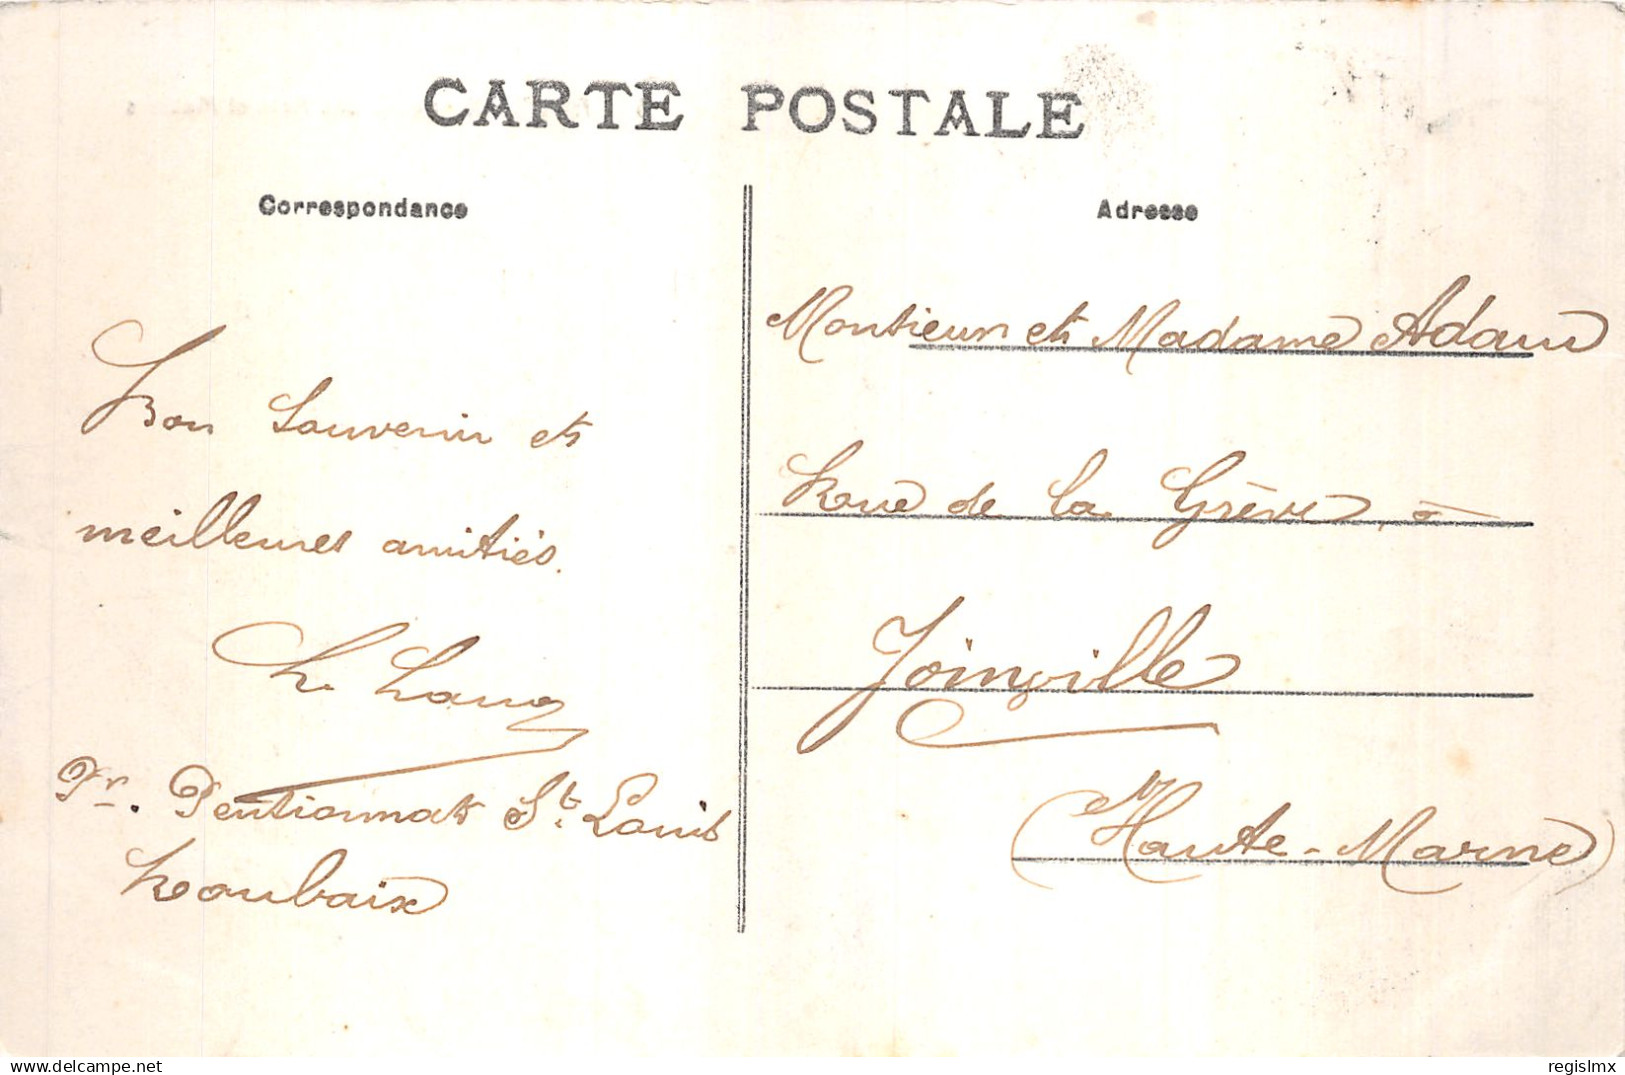 CARTE POSTALE
Correspondance
Bon souvenir et
meilleures amitiés.
Pr. Pensionnat St. Louis
Roubaix
Adresse
Monsieur et Madame Adam
Rue de la Grève à
Joinville
(Haute-Marne)
delcampe.net
regislmx